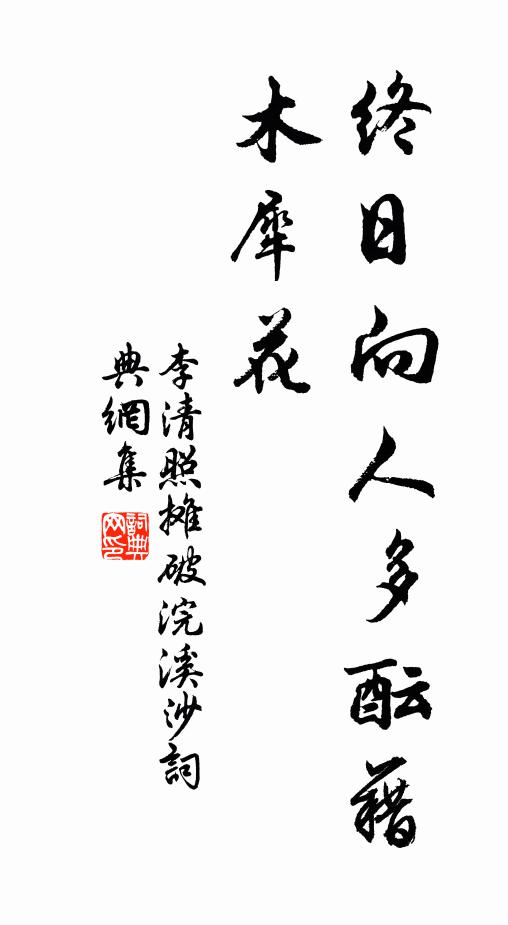 終日向人多酝藉
木犀花
李清照攤破浣溪沙詞
典網集
詞典網印